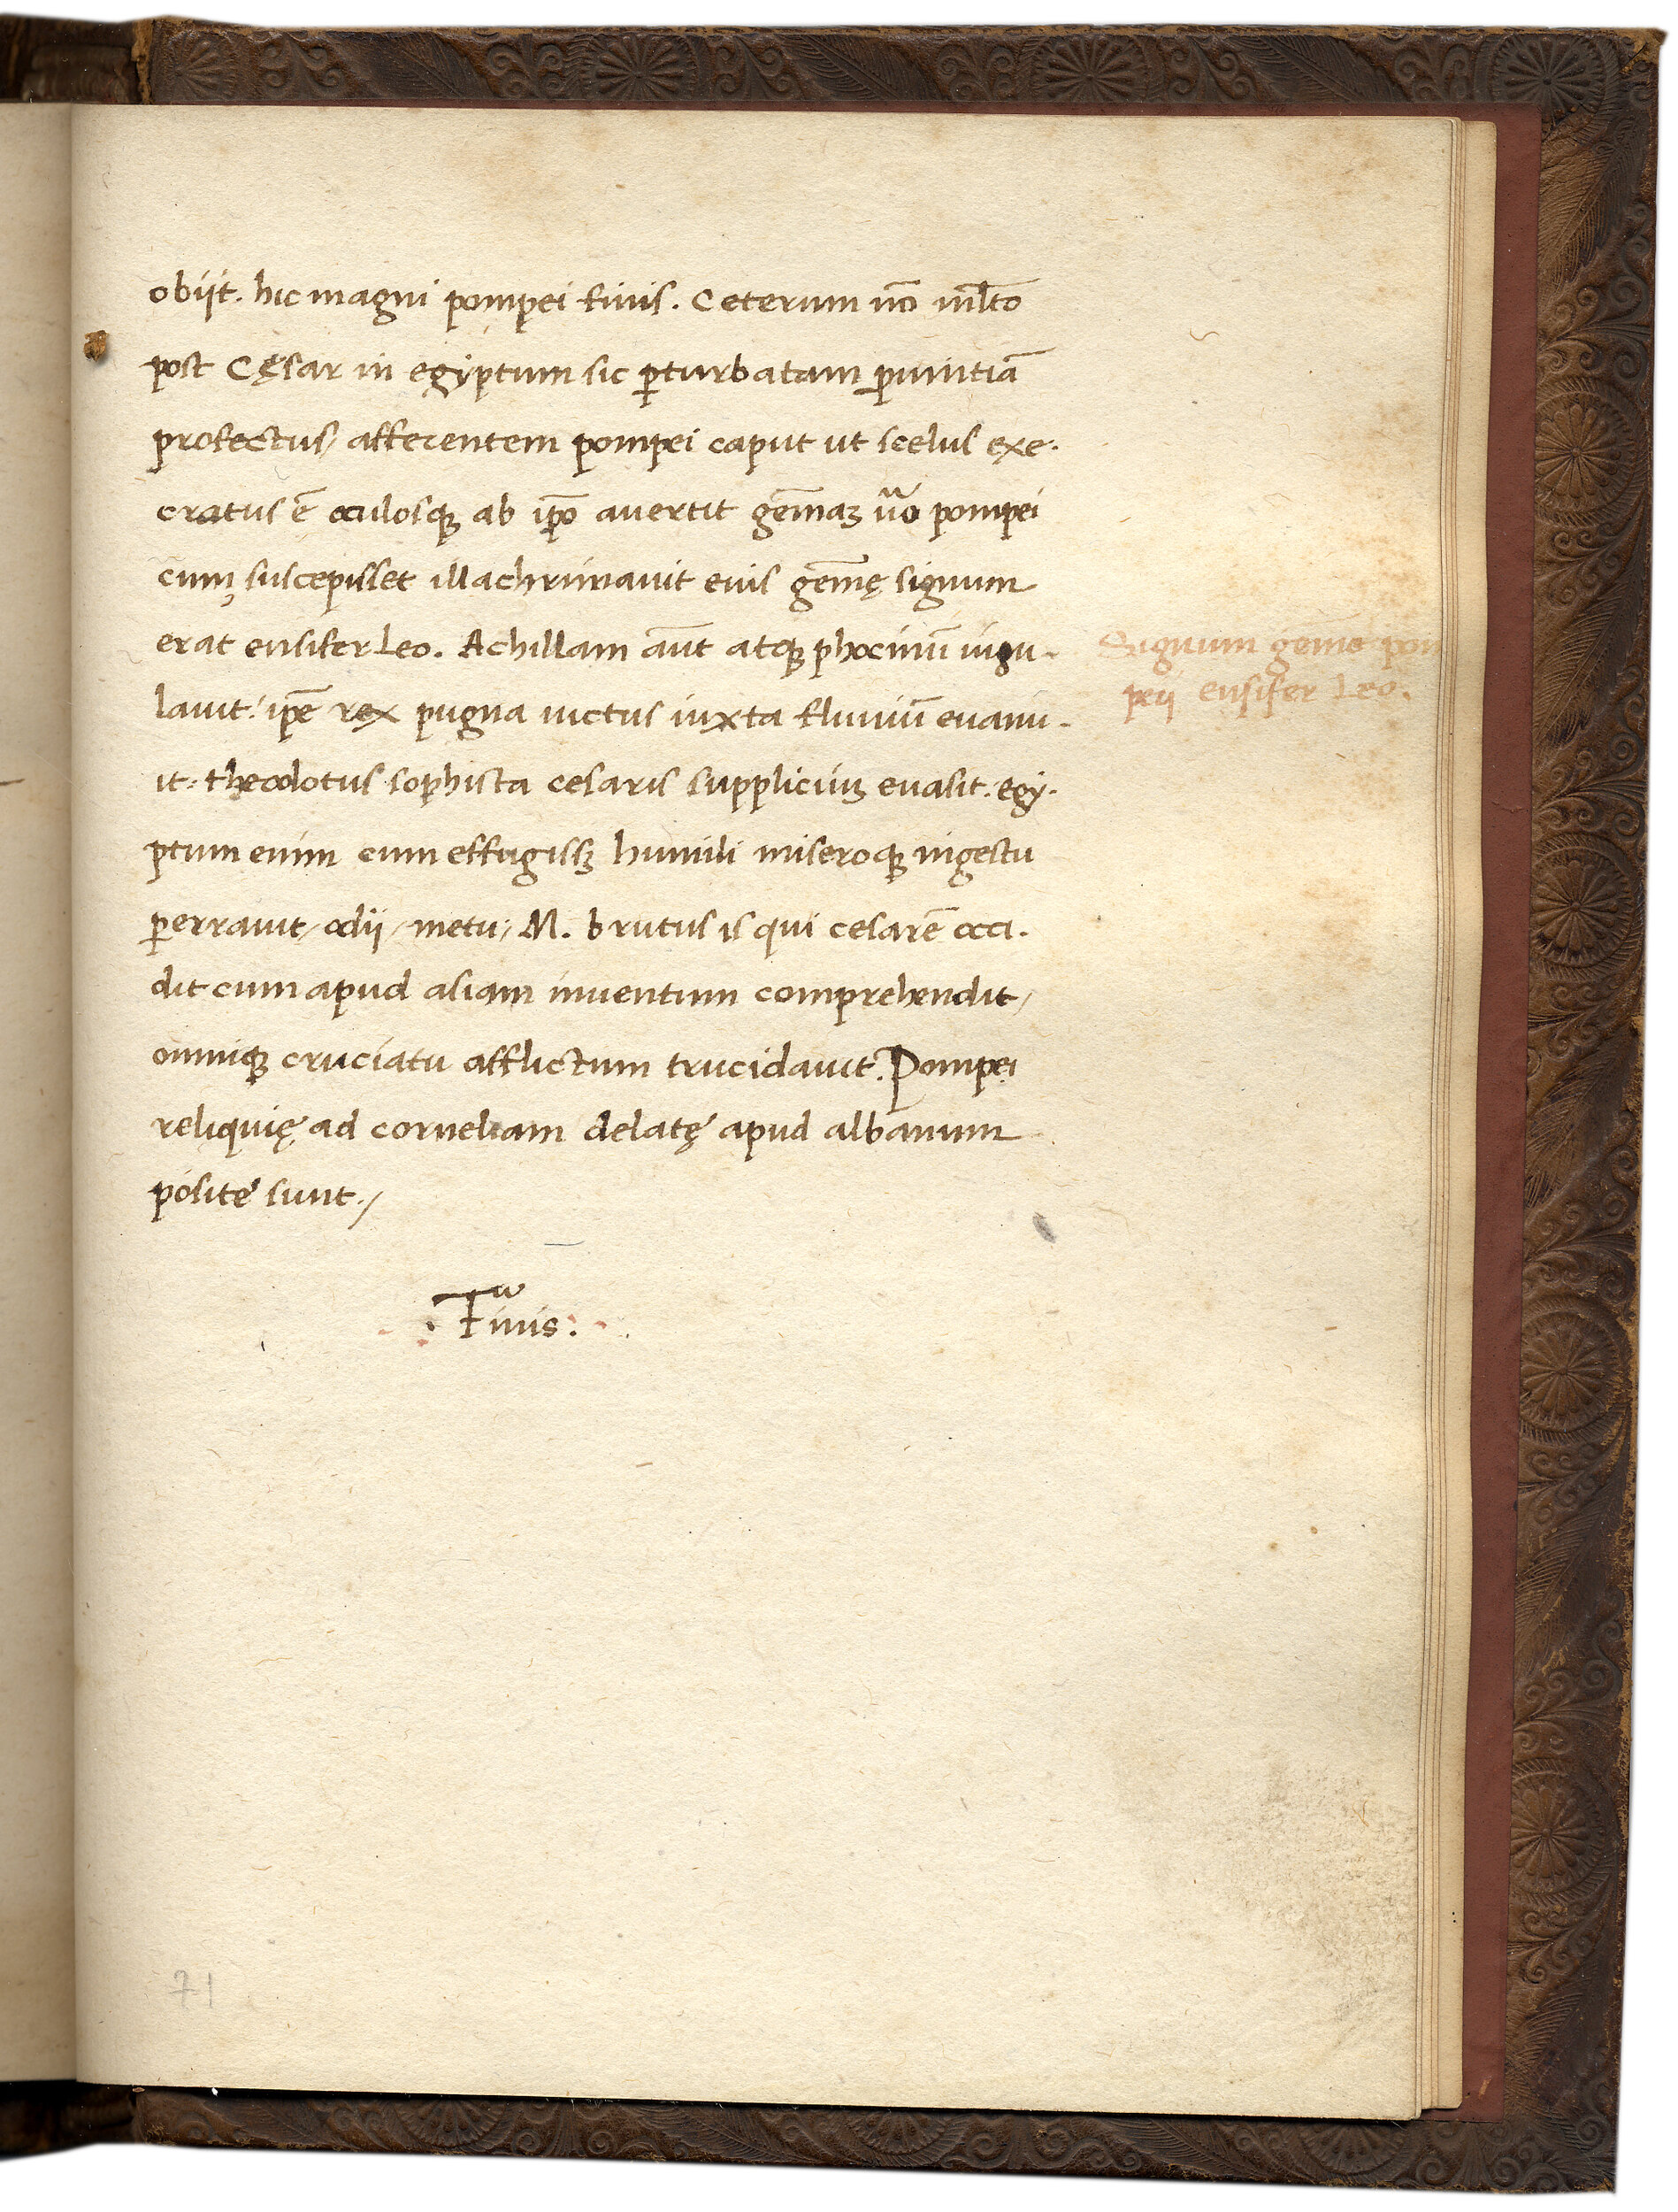 obijt. hic magni pompei finis. Ceterum nō ml̄to
post Cęsar in egyptum sic ꝑturbatam ꝓuintiā
profectus, afferentem pompei caput ut scelus exe-
cratus ē oculosqꝫ ab ip̄o avertit gem̄aꝫ ũo pompei
cumꝫ suscepisset illachrimavit euis gem̄ę signum
erat ensifer Leo. Achillam aūt atqꝫ phocinū iugu-
lavit: ip̄e rex pugna victus iuxta fluviū evanu-
it: theodotus sophista cesaris suppliciuꝫ evasit. egy-
ptum enim cum effugissꝫ humili miseroqꝫ ingestu
ꝑerravit, odij, metu, M. brutus is qui cesarē occi-
dit cum apud asiam inventum comprehendit,
omniqꝫ cruciatu afflictum trucidavit. Pompei
reliquię ad corneliam delatę apud albanum
posite sunt./
Signum geme pom
peij ensifer Leo.
. Finis.
71